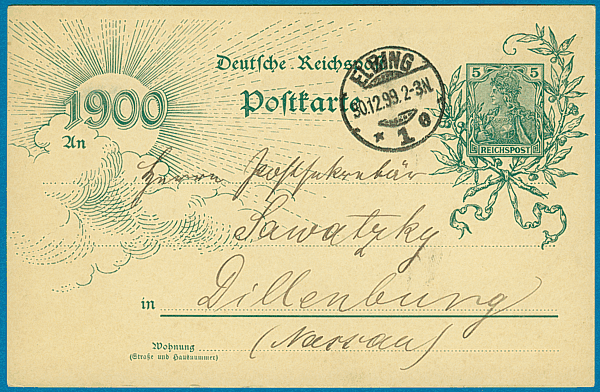 Deutsche Reichspost
1900
Postkarte
ELBING
30.12.99.2-3N.
* 1 e
5 5
REICHSPOST
An
Herrn Postsekretär
Sawatzky
in Dillenburg
(Nassau)
Wohnung
(Straße und Hausnummer)